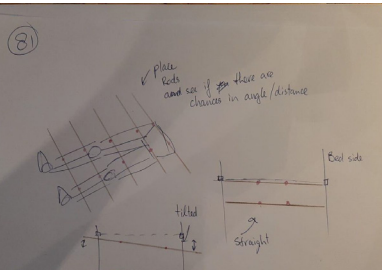 81
place
Rods
and see if there are
chances in angle/distance
Bed side
tilted
straight